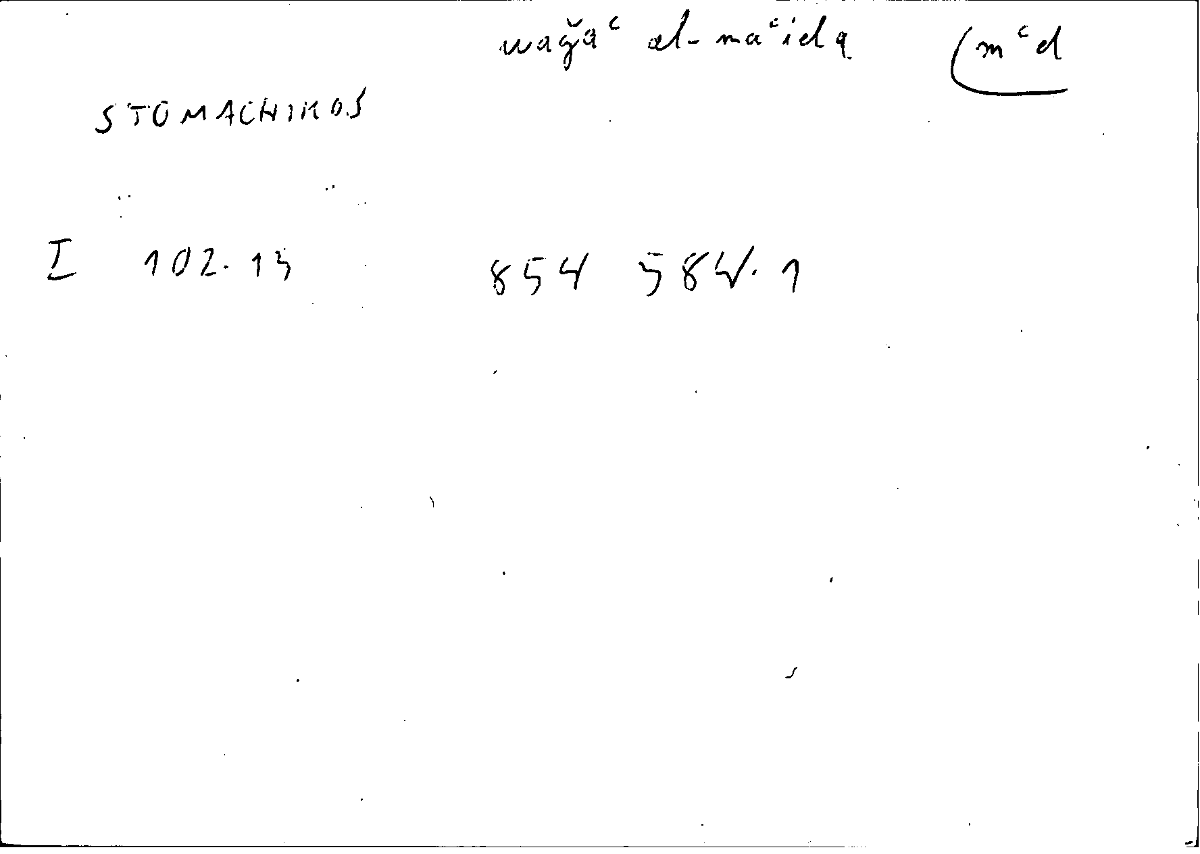 waǧaʿ al-maʿida (mʿd
STOMACHIKOS
I 102.13 854 584.1